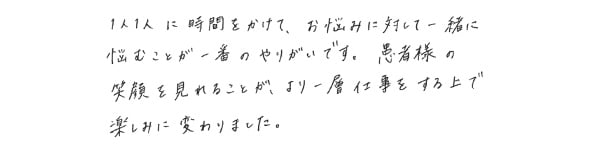 1人1人に時間をかけて、お悩みに対して一緒に
悩むことが一番のやりがいです。患者様の
笑顔を見れることが、より一層仕事をする上で
楽しみに変わりました。